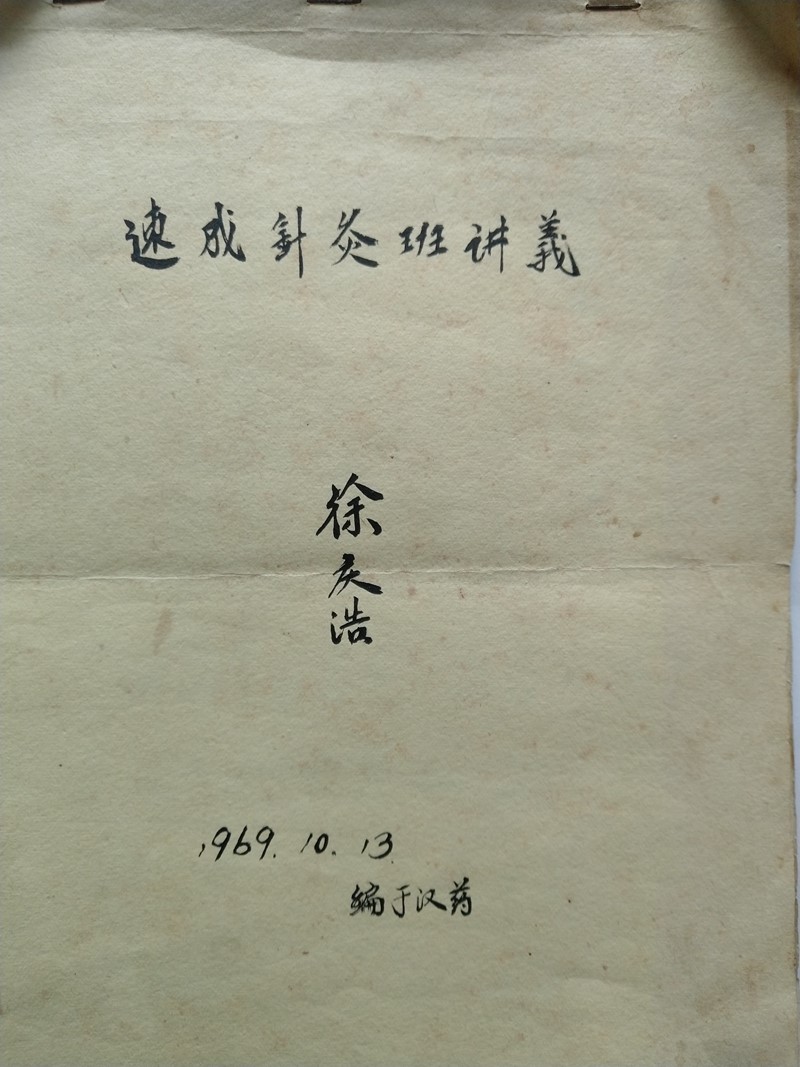 速成針灸班讲義
徐庆浩
1969.10.13
编于汉药